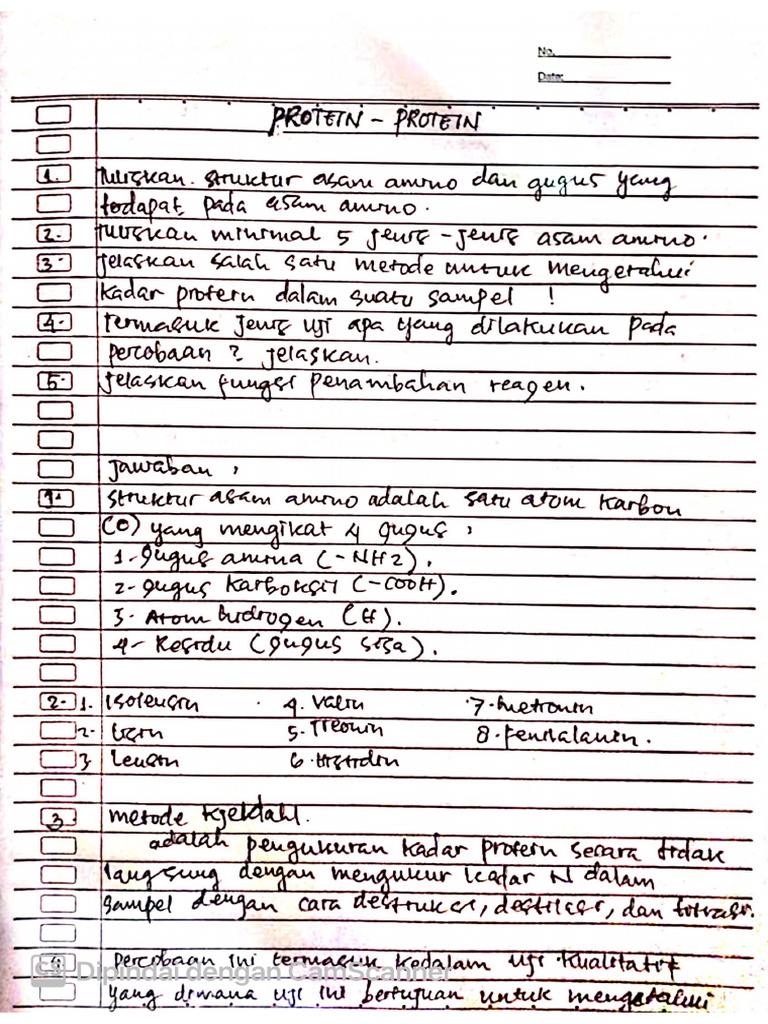 No.
Date:
PROTEIN - PROTEIN
1. tuliskan struktur asam amino dan gugus yang
terdapat pada asam amino.
2. tuliskan minimal 5 jenis - jenis asam amino.
3. jelaskan salah satu metode untuk mengetahui
kadar protein dalam suatu sampel !
4. termasuk jenis uji apa yang dilakukan pada
percobaan ? jelaskan.
5. jelaskan fungsi penambahan reagen.
jawaban :
1. struktur asam amino adalah satu atom karbon
(C) yang mengikat 4 gugus :
1. gugus amina (-NH2).
2. gugus karboksil (-COOH).
3. Atom hidrogen (H).
4. Residu (gugus sisa).
2. 1. Isoleusin 4. valin 7. metionin
2. lisin 5. Treonin 8. fenilalanin.
3. leusin 6. Histidin
3. metode Kjeldahl.
adalah pengukuran kadar protein secara tidak
langsung dengan mengukur kadar N dalam
sampel dengan cara destruksi, destilasi, dan titrasi.
4. percobaan ini termasuk kedalam uji kualitatif
Dipindai dengan CamScanner
yang dimana uji ini bertujuan untuk mengetahui